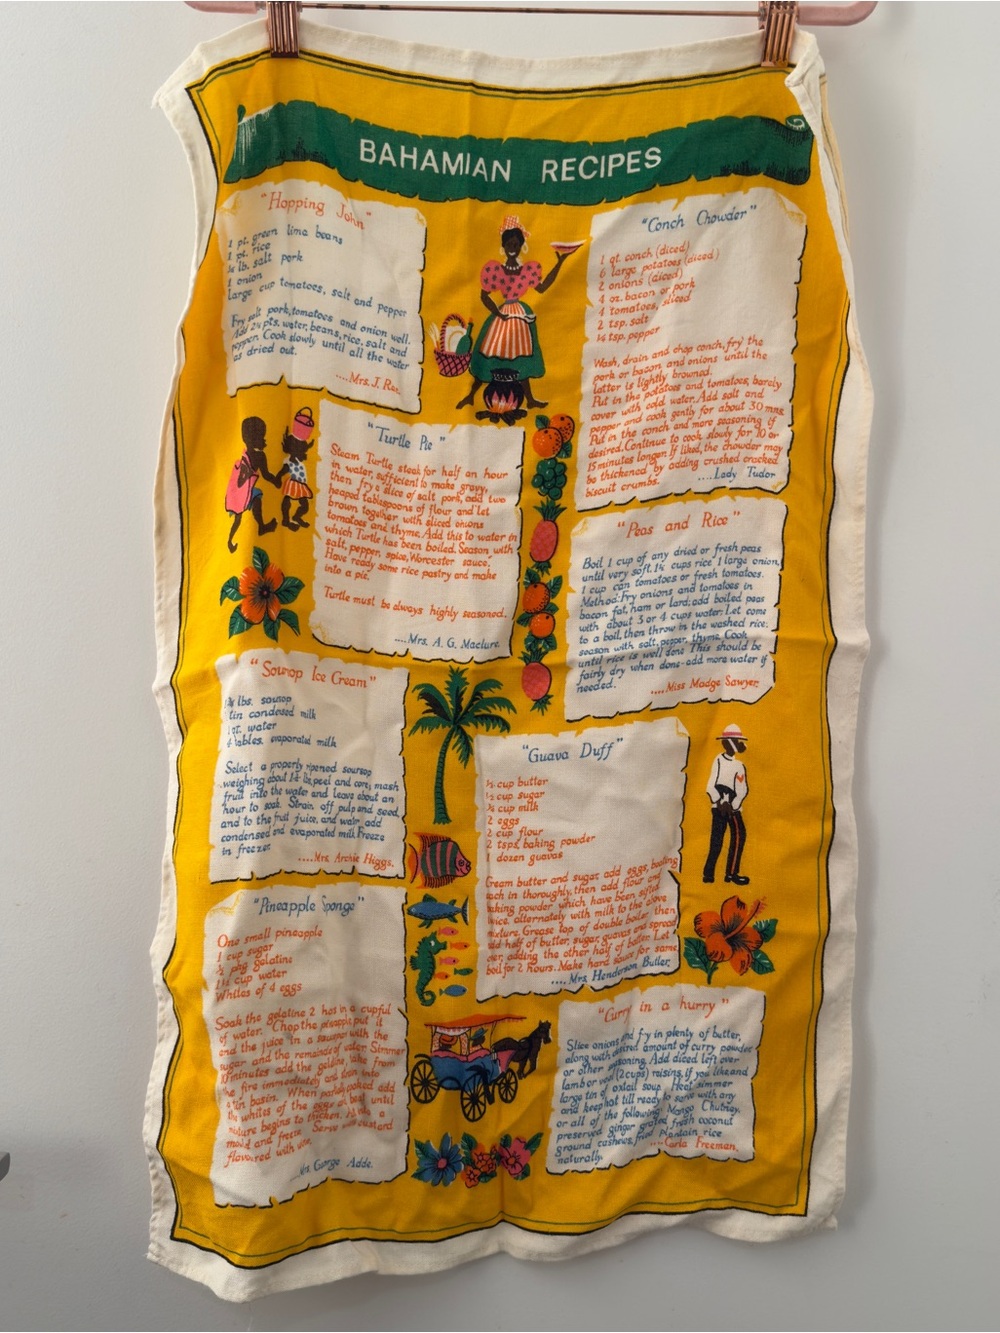 BAHAMIAN RECIPES
"Hopping John"
1 pt. green lima beans
1 pt. rice
lb. salt pork
1 onion
Large cup tomatoes, salt and pepper
Fry salt pork, tomatoes and onion well.
Add 2½ pts. water, beans, rice, salt and
pepper. Cook slowly until all the water
is dried out.
....Mrs. J. Rae.
"Conch Chowder"
1 qt. conch (diced)
6 large potatoes (diced)
2 onions (diced)
4 oz. bacon or pork
4 tomatoes, sliced
2 tsp. salt
¼ tsp. pepper
Wash, drain and chop conch, fry the
pork or bacon and onions until the
latter is lightly browned.
Put in the potatoes and tomatoes, barely
cover with cold water. Add salt and
pepper and cook gently for about 30 mns.
Put in the conch and more seasoning if
desired. Continue to cook slowly for 10 or
15 minutes longer. If liked, the chowder may
be thickened by adding crushed cracked
biscuit crumbs.
....Lady Tudor
"Turtle Pie"
Steam Turtle steak for half an hour
in water, sufficient to make gravy,
then fry a slice of salt pork, add two
heaped tablespoons of flour and let
brown together with sliced onions
tomatoes and thyme. Add this to water in
which Turtle has been boiled. Season with
salt, pepper, spice, Worcester sauce.
Have ready some rice pastry and make
into a pie.
Turtle must be always highly seasoned.
....Mrs. A. G. Maclure.
"Peas and Rice"
Boil 1 cup of any dried or fresh peas
until very soft. 1¼ cups rice 1 large onion,
1 cup can tomatoes or fresh tomatoes.
Method: Fry onions and tomatoes in
bacon fat, ham or lard; add boiled peas
with about 3 or 4 cups water: Let come
to a boil, then throw in the washed rice:
season with salt, pepper, thyme. Cook
until rice is well done This should be
fairly dry when done - add more water if
needed.
....Miss Madge Sawyer.
"Soursop Ice Cream"
lbs. soursop
1 tin condensed milk
1 qt. water
4 tables. evaporated milk
Select a properly ripened soursop
weighing about lbs, peel and core; mash
fruit into the water and leave about an
hour to soak. Strain off pulp and seed,
and to the fruit juice, and water add
condensed and evaporated milk. Freeze
in freezer.
....Mrs. Archie Higgs.
"Guava Duff"
cup butter
½ cup sugar
cup milk
2 eggs
2 cup flour
2 tsps. baking powder
1 dozen guavas
Cream butter and sugar, add eggs, beating
each in thoroughly, then add flour and
baking powder which have been sifted
twice, alternately with milk to the above
mixture. Grease top of double boiler, then
add half of butter, sugar, guavas and spread
over, adding the other half of batter. Let
boil for 2 hours. Make hard sauce for same.
.... Mrs. Henderson Butler.
"Pineapple Sponge"
One small pineapple
1 cup sugar
½ pkg gelatine
1½ cup water
Whites of 4 eggs
Soak the gelatine 2 hrs in a cupful
of water. Chop the pineapple, put it
and the juice in a saucepan with the
sugar and the remainder of water. Simmer
10 minutes add the gelatine, take from
the fire immediately and strain into
a tin basin. When partially cooked add
the whites of the eggs and beat until
mixture begins to thicken. into a
mold and freeze. Serve with custard
flavoured with wine.
...Mrs. George Adde.
"Curry in a hurry"
Slice onions and fry in plenty of butter,
along with desired amount of curry powder
or other seasoning. Add diced left over
lamb or veal (2 cups) raisins, if you like and
large tin of oxtail soup. Heat, simmer
and keep hot till ready to serve with any
or all of the following: Mango Chutney,
preserved ginger grated fresh coconut
ground cashews, fried plantain, rice
naturally.
....Carla Freeman.